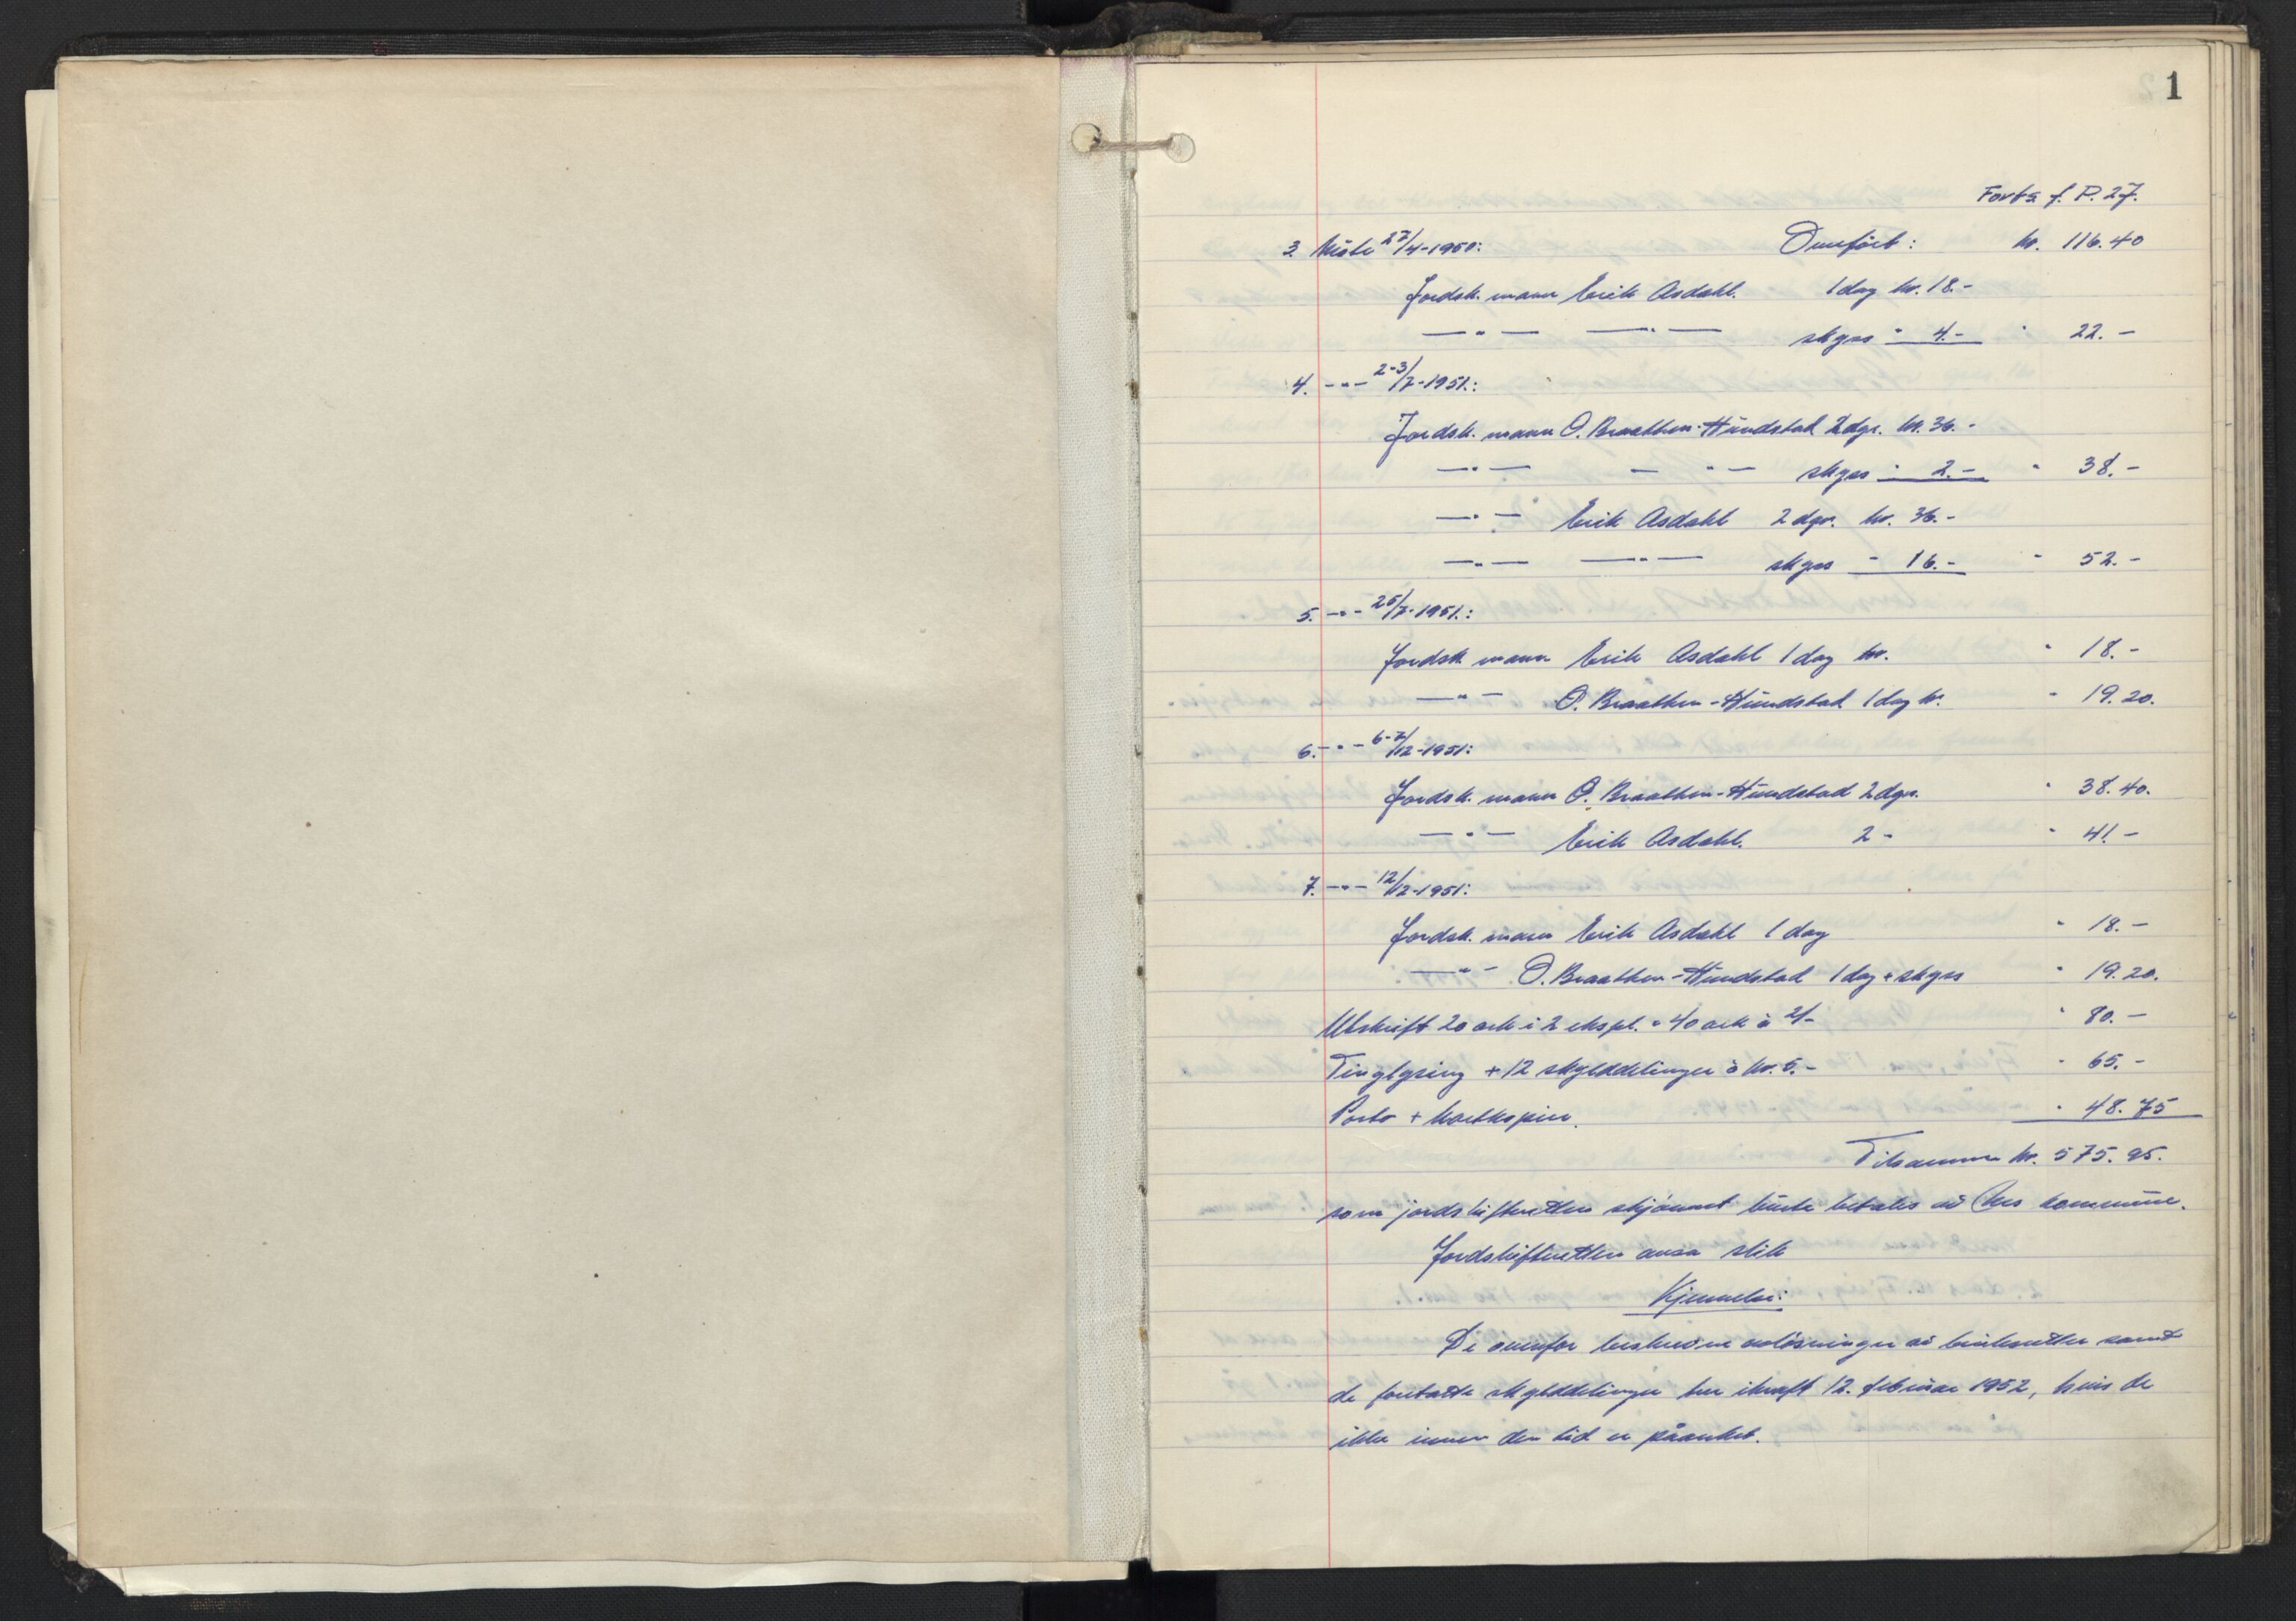 1
Forts f. P. 27.
3. Møte 27/4-1950: Overført: kr. 116.40
Jordsk. mann Erik Asdahl. 1 dag kr. 18.-
—"— —"— skyss " 4.- " 22.-
4. -"- 2-3/7-1951.:
Jordsk. mann O. Braathen-Hundstad 2 dgr. kr. 36.-
—"— — "— skyss " 2.- " 38.-
—"— Erik Asdahl 2 dgr. kr. 36.-
—"— —"— skyss " 16.- " 52.-
5. -"- 25/7-1951.:
Jordsk mann Erik Asdahl 1 dag kr. " 18.-
—"— O. Braathen-Hundstad 1 dag kr. " 19.20.
6. -"- 6-7/12-1951:
Jordsk. mann O. Braathen-Hundstad 2 dgr. " 38.40.
—"— Erik Asdahl. 2 - " 41.-
7. -"- 12/12-1951:
Jordsk. mann Erik Asdahl 1 dag " 18.-
—"— O. Braathen-Hundstad 1 dag + skyss " 19.20.
Utskrift 20 ark i 2 ekspl. = 40 ark à 2/- " 80.-
Tinglysing + 12 skylddelinger à kr. 5.- " 65.-
Porto + kartkopier. " 48.75
Tilsammen kr. 575.95.
som jordskifteretten skjønnet burde betales av Aas kommune.
Jordskifteretten avsa slik
Kjennelse:
De ovenfor beskrevne avløsninger av bruksretter samt
de foretatte skylddelinger trer ikraft 12. februar 1952, hvis de
ikke innen den tid er påanket.